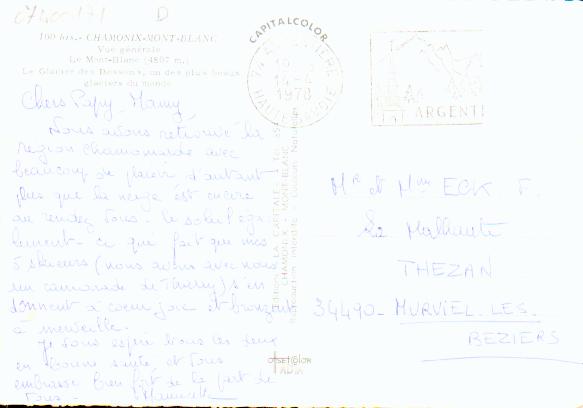 07400171 D
160 bis. - CHAMONIX-MONT-BLANC
Vue générale
Le Mont-Blanc (4807 m.)
Le Glacier des Bossons, un des plus beaux
glaciers du monde
Chers Papy - Mamy
Nous avons retrouvé la
région chamoniarde avec
beaucoup de plaisir d'autant
plus que la neige est encore
au rendez vous - le soleil éga-
lement - ce qui fait que mes
5 skieurs (nous avons avec nous
un camarade de Thierry) s'en
donnent à coeur joie et bronzent
à merveille.
Je vous espère tous les deux
en bonne santé et vous
embrasse bien fort de la part de
tous -
CAPITALCOLOR
74 ARGENTIERE
14-4
1978
HAUTE-SAVOIE
ARGENTI
LA CAPITALE
CHAMONIX - MONT-BLANC
Mr et Mme ECK F.
La Malhaute
THEZAN
34490 - MURVIEL-LES-
BEZIERS
offset color